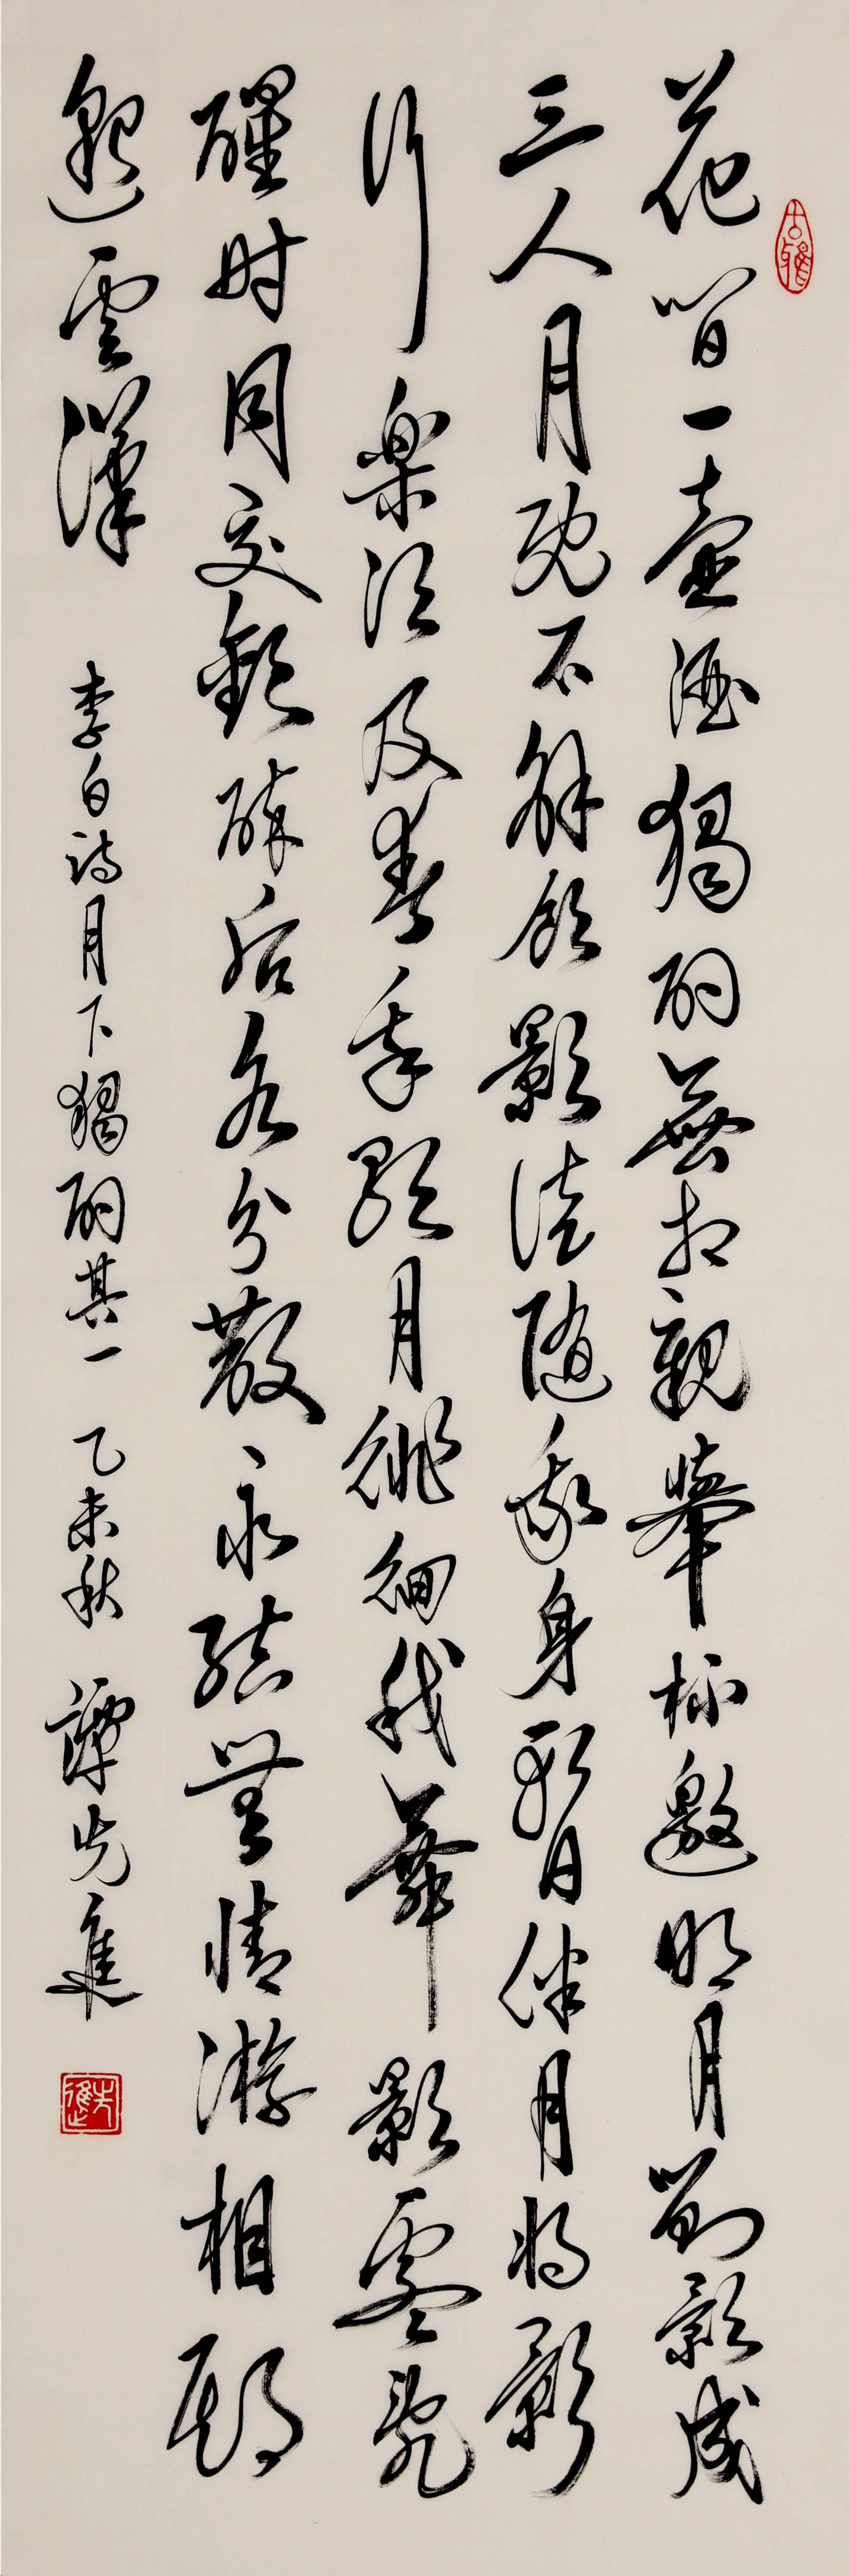 花間一壺酒獨酌無相親舉杯邀明月對影成
三人月既不解飲影徒隨我身暫伴月将影
行楽須及春我歌月徘徊我舞影零亂
醒时同交歡醉后各分散永結無情游相期
邈雲漢 李白詩月下獨酌其一 乙未秋 譚先進
先進